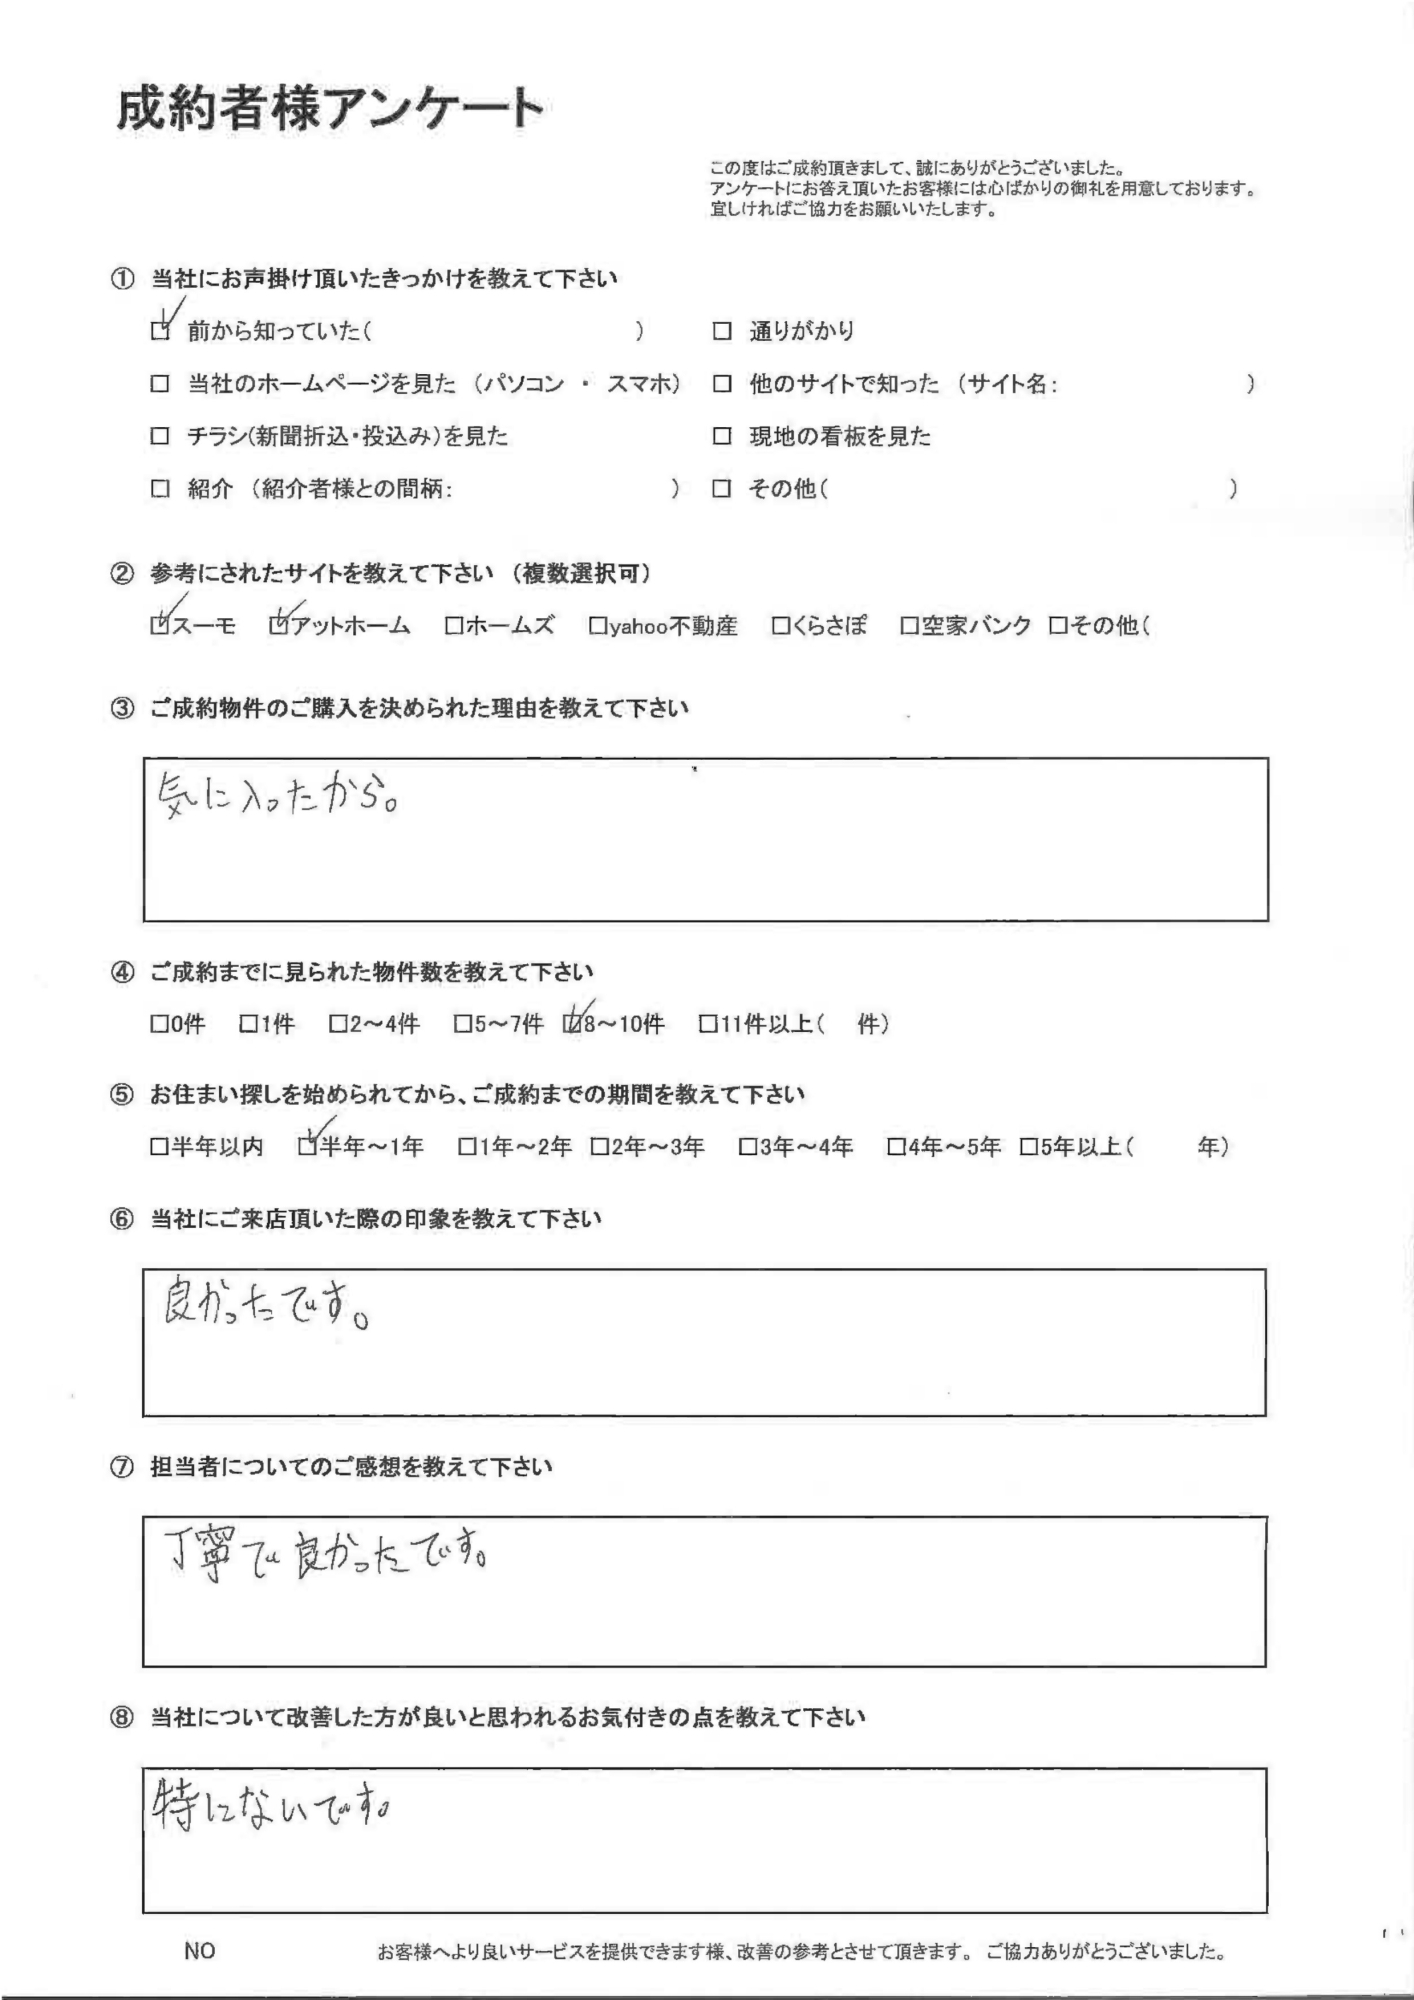 成約者様アンケート
この度はご成約頂きまして、誠にありがとうございました。
アンケートにお答え頂いたお客様には心ばかりの御礼を用意しております。
宜しければご協力をお願いいたします。
① 当社にお声掛け頂いたきっかけを教えて下さい
☑ 前から知っていた( ) □ 通りがかり
□ 当社のホームページを見た (パソコン ・ スマホ) □ 他のサイトで知った (サイト名: )
□ チラシ(新聞折込・投込み)を見た □ 現地の看板を見た
□ 紹介 (紹介者様との間柄: ) □ その他( )
② 参考にされたサイトを教えて下さい (複数選択可)
☑スーモ ☑アットホーム □ホームズ □yahoo不動産 □くらさぽ □空家バンク □その他(
③ ご成約物件のご購入を決められた理由を教えて下さい
気に入ったから。
④ ご成約までに見られた物件数を教えて下さい
□0件 □1件 □2〜4件 □5〜7件 ☑8〜10件 □11件以上( 件)
⑤ お住まい探しを始められてから、ご成約までの期間を教えて下さい
□半年以内 ☑半年〜1年 □1年〜2年 □2年〜3年 □3年〜4年 □4年〜5年 □5年以上( 年)
⑥ 当社にご来店頂いた際の印象を教えて下さい
良かったです。
⑦ 担当者についてのご感想を教えて下さい
丁寧で良かったです。
⑧ 当社について改善した方が良いと思われるお気付きの点を教えて下さい
特にないです。
NO お客様へより良いサービスを提供できます様、改善の参考とさせて頂きます。 ご協力ありがとうございました。